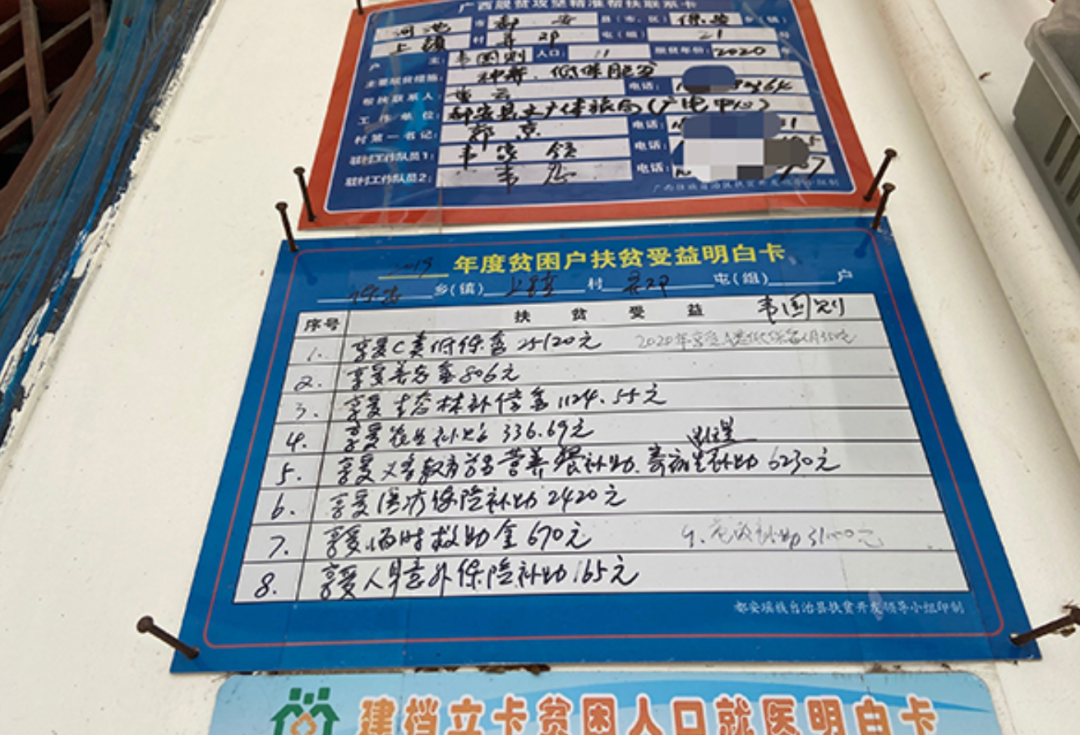 广西脱贫攻坚精准帮扶联系卡
河池 市 都安 县(市、区) 保安 乡(镇)
上镇 村 屯(组) 21 号
户主: 韦国则 人口: 11 脱贫年份: 2020 年
主要脱贫措施: 种养、低保脱贫
帮扶联系人: 电话:
工作单位: 都安县文广体旅局(广电中心)
村第一书记: 郑京 电话:
驻村工作队员1: 韦 电话:
驻村工作队员2: 韦 电话:
广西壮族自治区扶贫开发领导小组制
2019 年度贫困户扶贫受益明白卡
保安 乡(镇) 上镇 村 屯(组) 户
序号 扶贫受益 韦国则
1. 享受C类低保金25120元 2020年享受
2. 享受养老金806元
3. 享受生态林补偿金1124.55元
4. 享受农业补贴336.69元
5. 享受义务教育学生营养餐补助、寄宿生补助6230元
6. 享受医疗保险补助2420元
7. 享受临时救助金670元 9.
8. 享受人身意外保险补助165元
都安瑶族自治县扶贫开发领导小组印制
建档立卡贫困人口就医明白卡